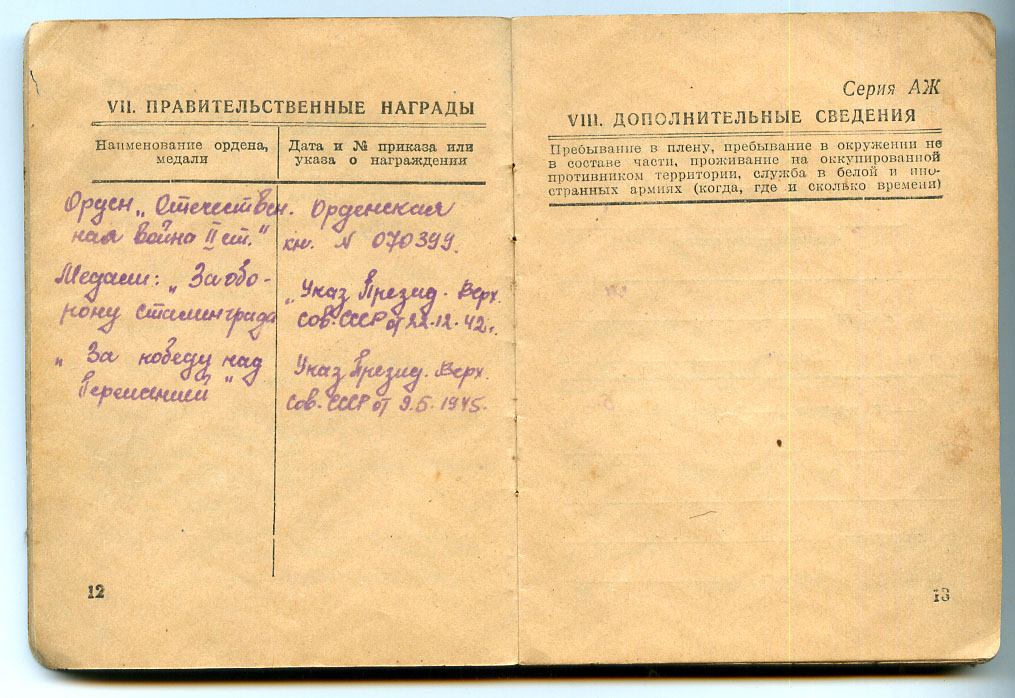 VII. ПРАВИТЕЛЬСТВЕННЫЕ НАГРАДЫ
Наименование ордена,
медали
Дата и № приказа или
указа о награждении
Орден „Отечествен.
ная война II ст."
Орденская
кн. N 070399.
Медали: „За обо-
рону Сталинграда
„Указ Презид. Верх.
Сов. СССР от 22.12.42г.
„За победу над
Германией"
Указ Презид. Верх.
Сов. СССР от 9.5.1945.
12
Серия АЖ
VIII. ДОПОЛНИТЕЛЬНЫЕ СВЕДЕНИЯ
Пребывание в плену, пребывание в окружении не
в составе части, проживание на оккупированной
противником территории, служба в белой и ино-
странных армиях (когда, где и сколько времени)
13